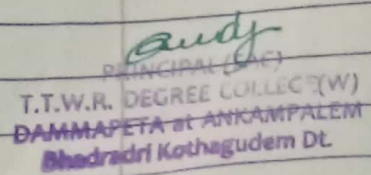 PRINCIPAL (FAC)
T.T.W.R. DEGREE COLLEGE (W)
DAMMAPETA at ANKAMPALEM
Bhadradri Kothagudem Dt.